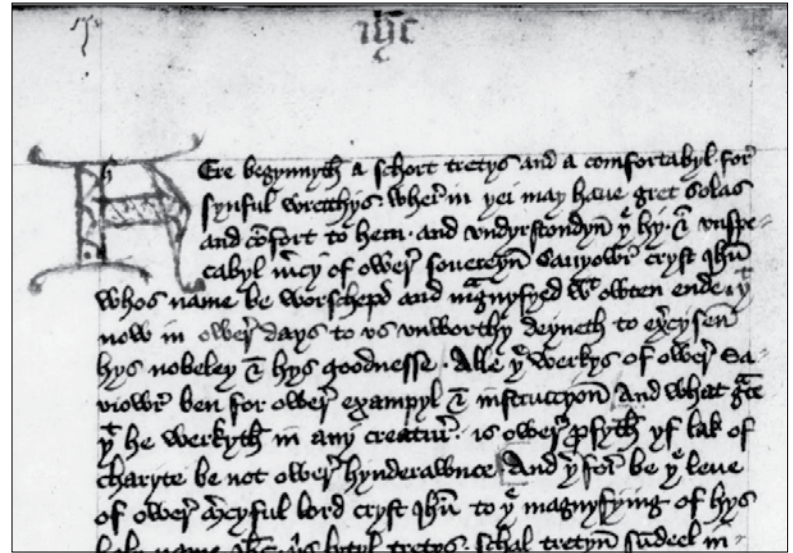 ihc
Here begynnyth a schort tretys and a comfortabyl for
synful wrecchys. wher in yei may haue gret solas
and cōfort to hem. and vndyrstondyn yͤ hy. & vnspe-
cabyl mͬcy of ower souereyn Sauyowr cryst ihū
whos name be worschepd and magnyfyed wᵗ owten ende. yᵗ
now in ower days to vs vnworthy deyneth to exͬcysen
hys nobeley & hys goodnesse. Alle yͤ werkys of ower Sa-
viowr ben for ower exampyl & instruccyon And what gͣce
yᵗ he werkyth in any creatur. is ower ꝓfyth yf lak of
charyte be not ower hynderawnce And yͬfor be yͤ leue
of ower mͬcyful lord cryst ihū to yͤ magnyfying of hys
holy name ihc. yͥs lytyl tretys. schal tretyn sūdeel in-